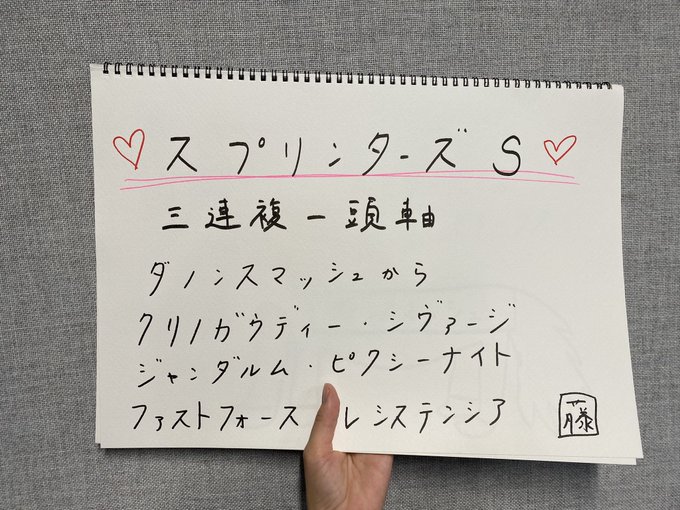 ♡スプリンターズS♡
三連複一頭軸
ダノンスマッシュから
クリノガウディー・シヴァージ
ジャンダルム・ピクシーナイト
ファストフォース レシステンシア
藤